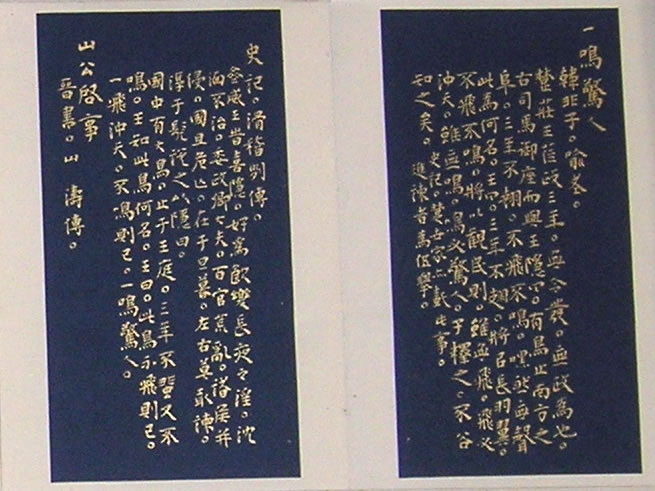 一鳴驚人
韓非子。喻老。
楚莊王莅政三年。無令發。無政為也。
右司馬御座而與王隱曰。有鳥止南方之
阜。三年不翅。不飛不鳴。嘿然無聲
此為何名。王曰。三年不翅。將以長羽翼。
不飛不鳴。將以觀民則。雖無飛。飛必
沖天。雖無鳴。鳴必驚人。子釋之。不谷
知之矣。
史記楚世家亦載此事。
進諫者為伍舉。
史記。滑稽列傳。
齊威王昔喜隱。好為飲樂長夜之淫。沈
湎不治。委政卿大夫。百官荒亂。諸侯并
侵。國且危亡。在于旦暮。左右莫敢諫。
淳于髡說之以隱曰。
國中有大鳥。止于王庭。三年不蜚又不
鳴。王知此鳥何名。王曰。此鳥不飛則已。
一飛沖天。不鳴則已。一鳴驚人。
山公啓事
晉書。山濤傳。